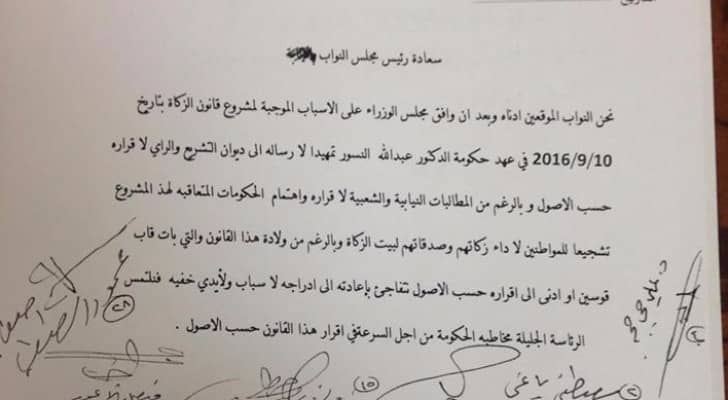 سعادة رئيس مجلس النواب
نحن النواب الموقعين ادناه وبعد ان وافق مجلس الوزراء على الاسباب الموجبة لمشروع قانون الزكاة بتاريخ
2016/9/10 في عهد حكومة الدكتور عبدالله النسور تمهيدا لا رساله الى ديوان التشريع والراي لا قراره
حسب الاصول و بالرغم من المطالبات النيابية والشعبية لا قراره واهتمام الحكومات المتعاقبه لهذ المشروع
تشجيعا للمواطنين لا داء زكاتهم وصدقاتهم لبيت الزكاة وبالرغم من ولادة هذا القانون والتي بات قاب
قوسين او ادنى الى اقراره حسب الاصول نتفاجئ بإعادته الى ادراجه لا سباب ولأيدي خفيه فنلتمس
الرئاسة الجليلة مخاطبه الحكومة من اجل السرعةفي اقرار هذا القانون حسب الاصول .